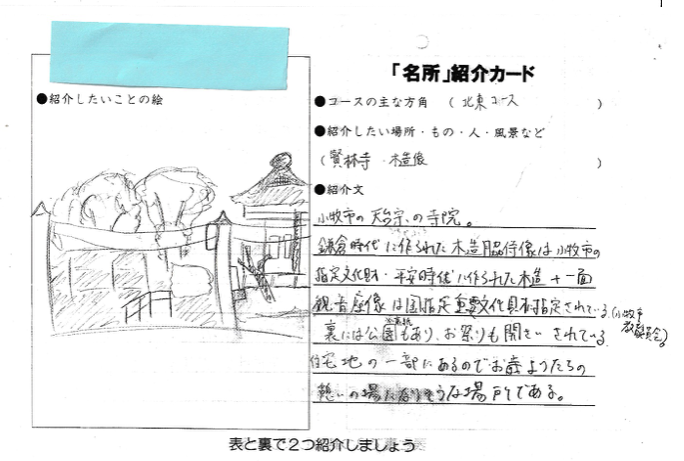 「名所」紹介カード
●紹介したいことの絵
●コースの主な方角 （ 北東コース ）
●紹介したい場所・もの・人・風景など
（ 賢林寺・木造像 ）
●紹介文
小牧市の天台宗の寺院。
鎌倉時代に作られた木造脇侍像は小牧市の
指定文化財・平安時代に作られた木造十一面
観音座像は国指定重要文化財指定されている。(小牧市
教育委員会)
裏には公園もあり、お祭りも開さいされている。
住宅地の一部にあるのでお歳ようたちの
憩いの場になりそうな場所である。
表と裏で２つ紹介しましょう